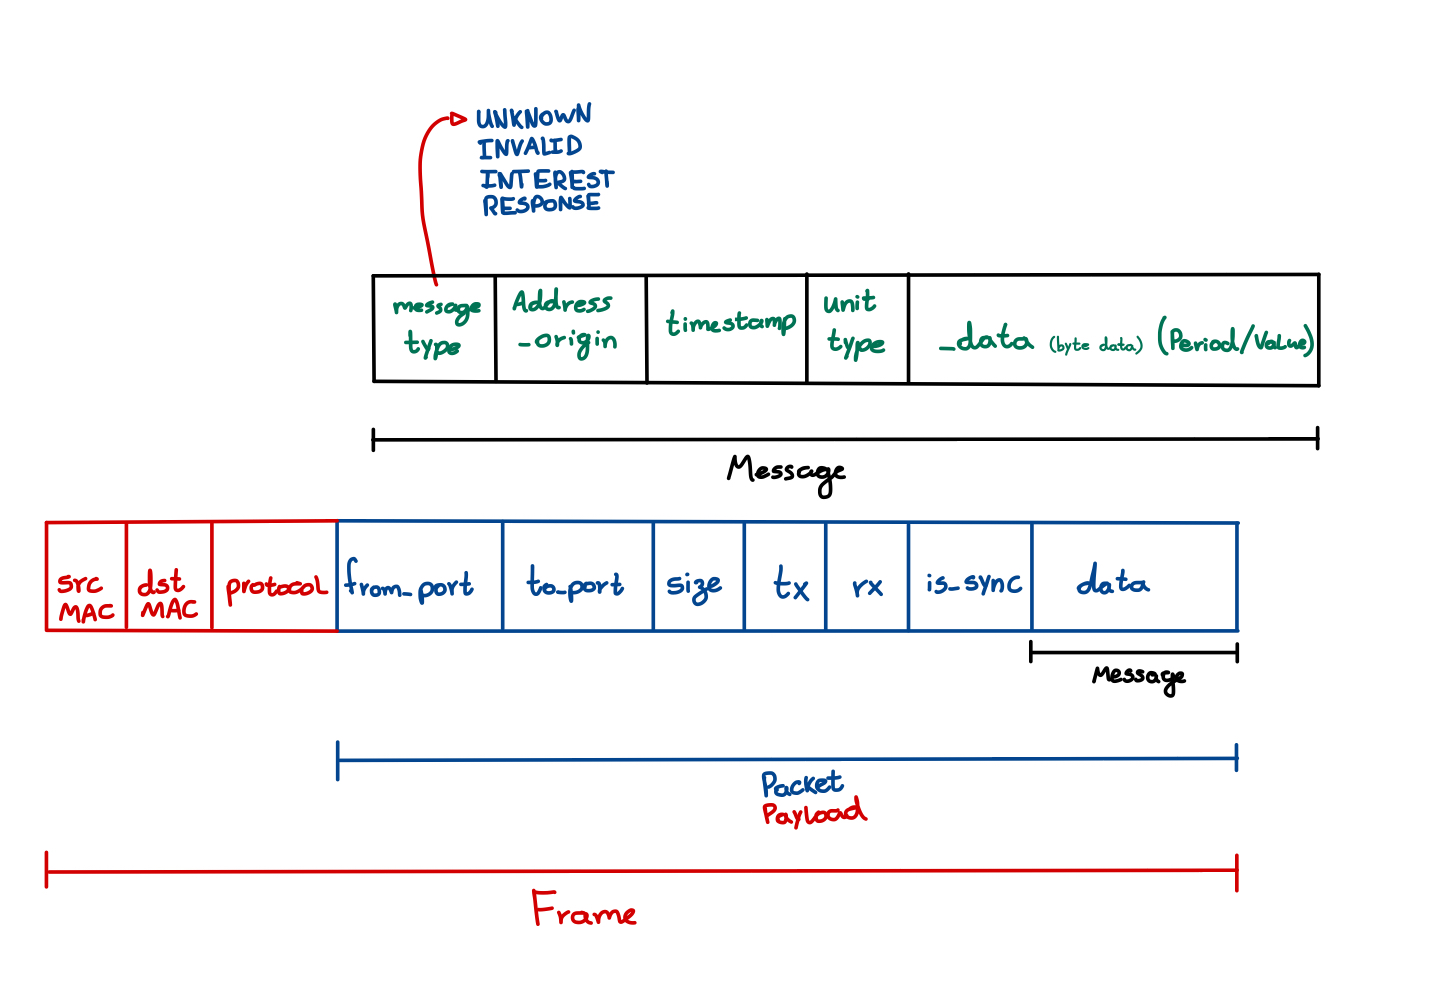 UNKNOWN
INVALID
INTEREST
RESPONSE
message
type
Address
_origin
timestamp
unit
type
_data (byte data) (Period/Value)
Message
src
MAC
dst
MAC
protocol
from_port
to_port
size
tx
rx
is_sync
data
Message
Packet
Payload
Frame